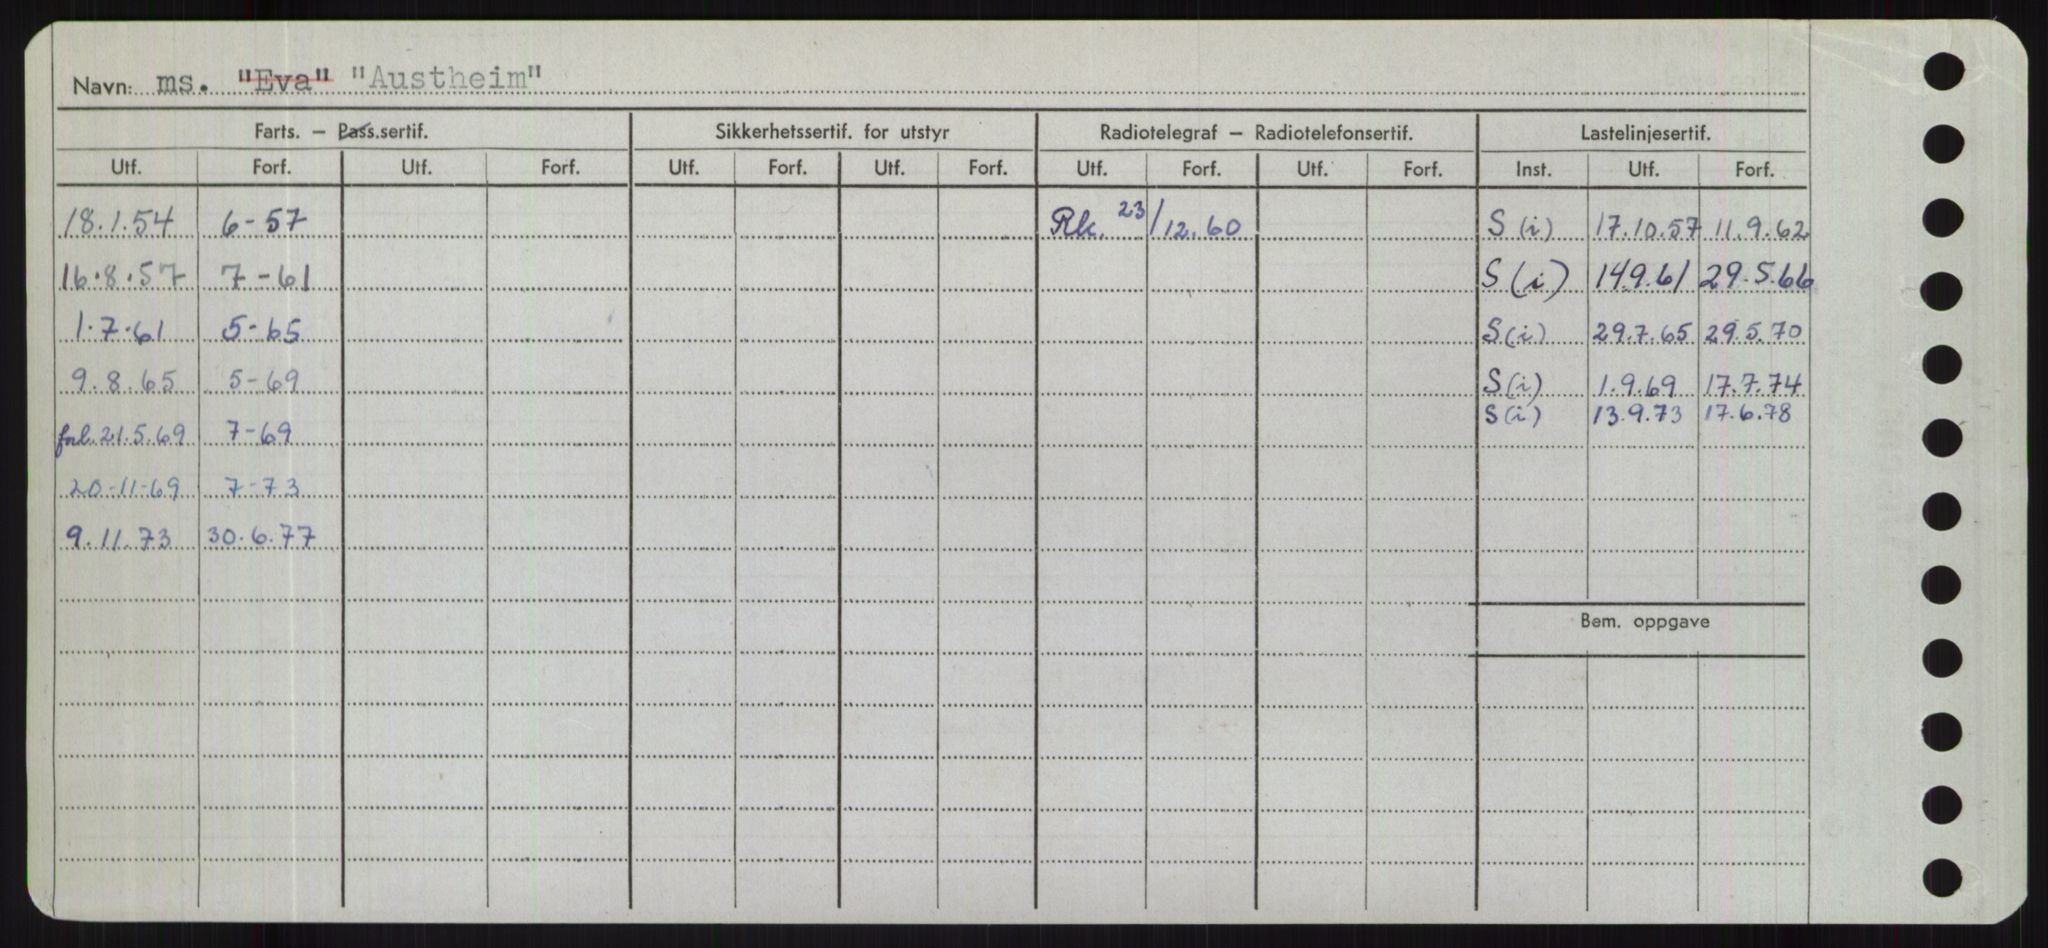 Navn: ms. "Eva" "Austheim"
Farts. – Pass.sertif. Sikkerhetssertif. for utstyr Radiotelegraf – Radiotelefonsertif. Lastelinjesertif.
Utf. Forf. Utf. Forf. Utf. Forf. Utf. Forf. Utf. Forf. Utf. Forf. Inst. Utf. Forf.
18.1.54 6-57 Rk. 23/12.60 S (i) 17.10.57 11.9.62
16.8.57 7-61 S (i) 14.9.61 29.5.66
1.7.61 5-65 S (i) 29.7.65 29.5.70
9.8.65 5-69 S (i) 1.9.69 17.7.74
S (i) 13.9.73 17.6.78
forl. 21.5.69 7-69
20-11-69 7-73
9.11.73 30.6.77
Bem. oppgave